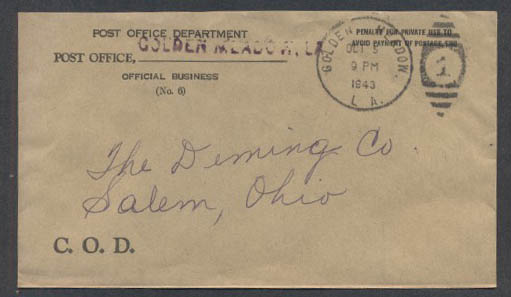 POST OFFICE DEPARTMENT
POST OFFICE, GOLDEN MEADOW, LA
OFFICIAL BUSINESS
(No. 6)
PENALTY FOR PRIVATE USE TO
AVOID PAYMENT OF POSTAGE, $300
GOLDEN MEADOW.
OCT 5
9 PM
1943
LA.
1
The Deming Co
Salem, Ohio
C. O. D.